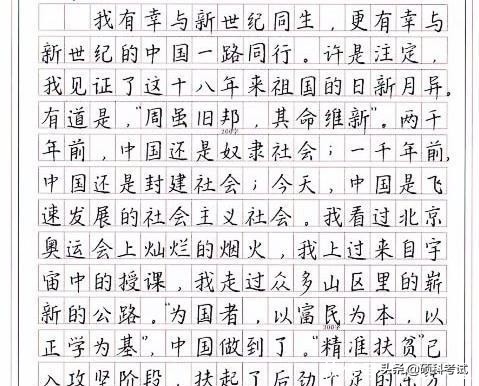 我有幸与新世纪同生，更有幸与
新世纪的中国一路同行。许是注定，
我见证了这十八年来祖国的日新月异。
有道是，“周虽旧邦，其命维新”。两千
200字
年前，中国还是奴隶社会；一千年前，
中国还是封建社会；今天，中国是飞
速发展的社会主义社会。我看过北京
奥运会上灿烂的烟火，我上过来自宇
宙中的授课，我走过众多山区里的崭
新的公路。“为国者，以富民为本，以
300字
正学为基”，中国做到了。“精准扶贫”已
入攻坚阶段，扶起了后劲十足的东方
头条@硕科考试